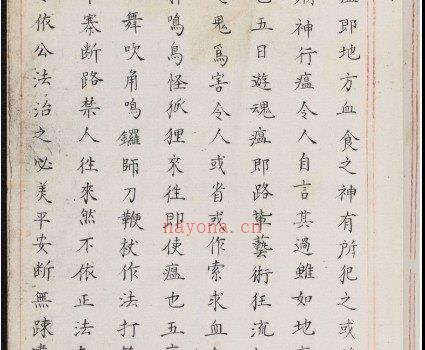 瘟即地方血食之神有所犯之或
神行瘟令人自言其過雖如地
五日遊魂瘟即路筆藝術狂流
鬼爲害令人或省或作索求血
鳴鳥怪狐狸來往即使瘟也五
舞吹角鳴鑼師刀鞭杖作法打
寨斷路禁人往來然不依正法
依公法治之必美平安斷無踈
nayona.cn